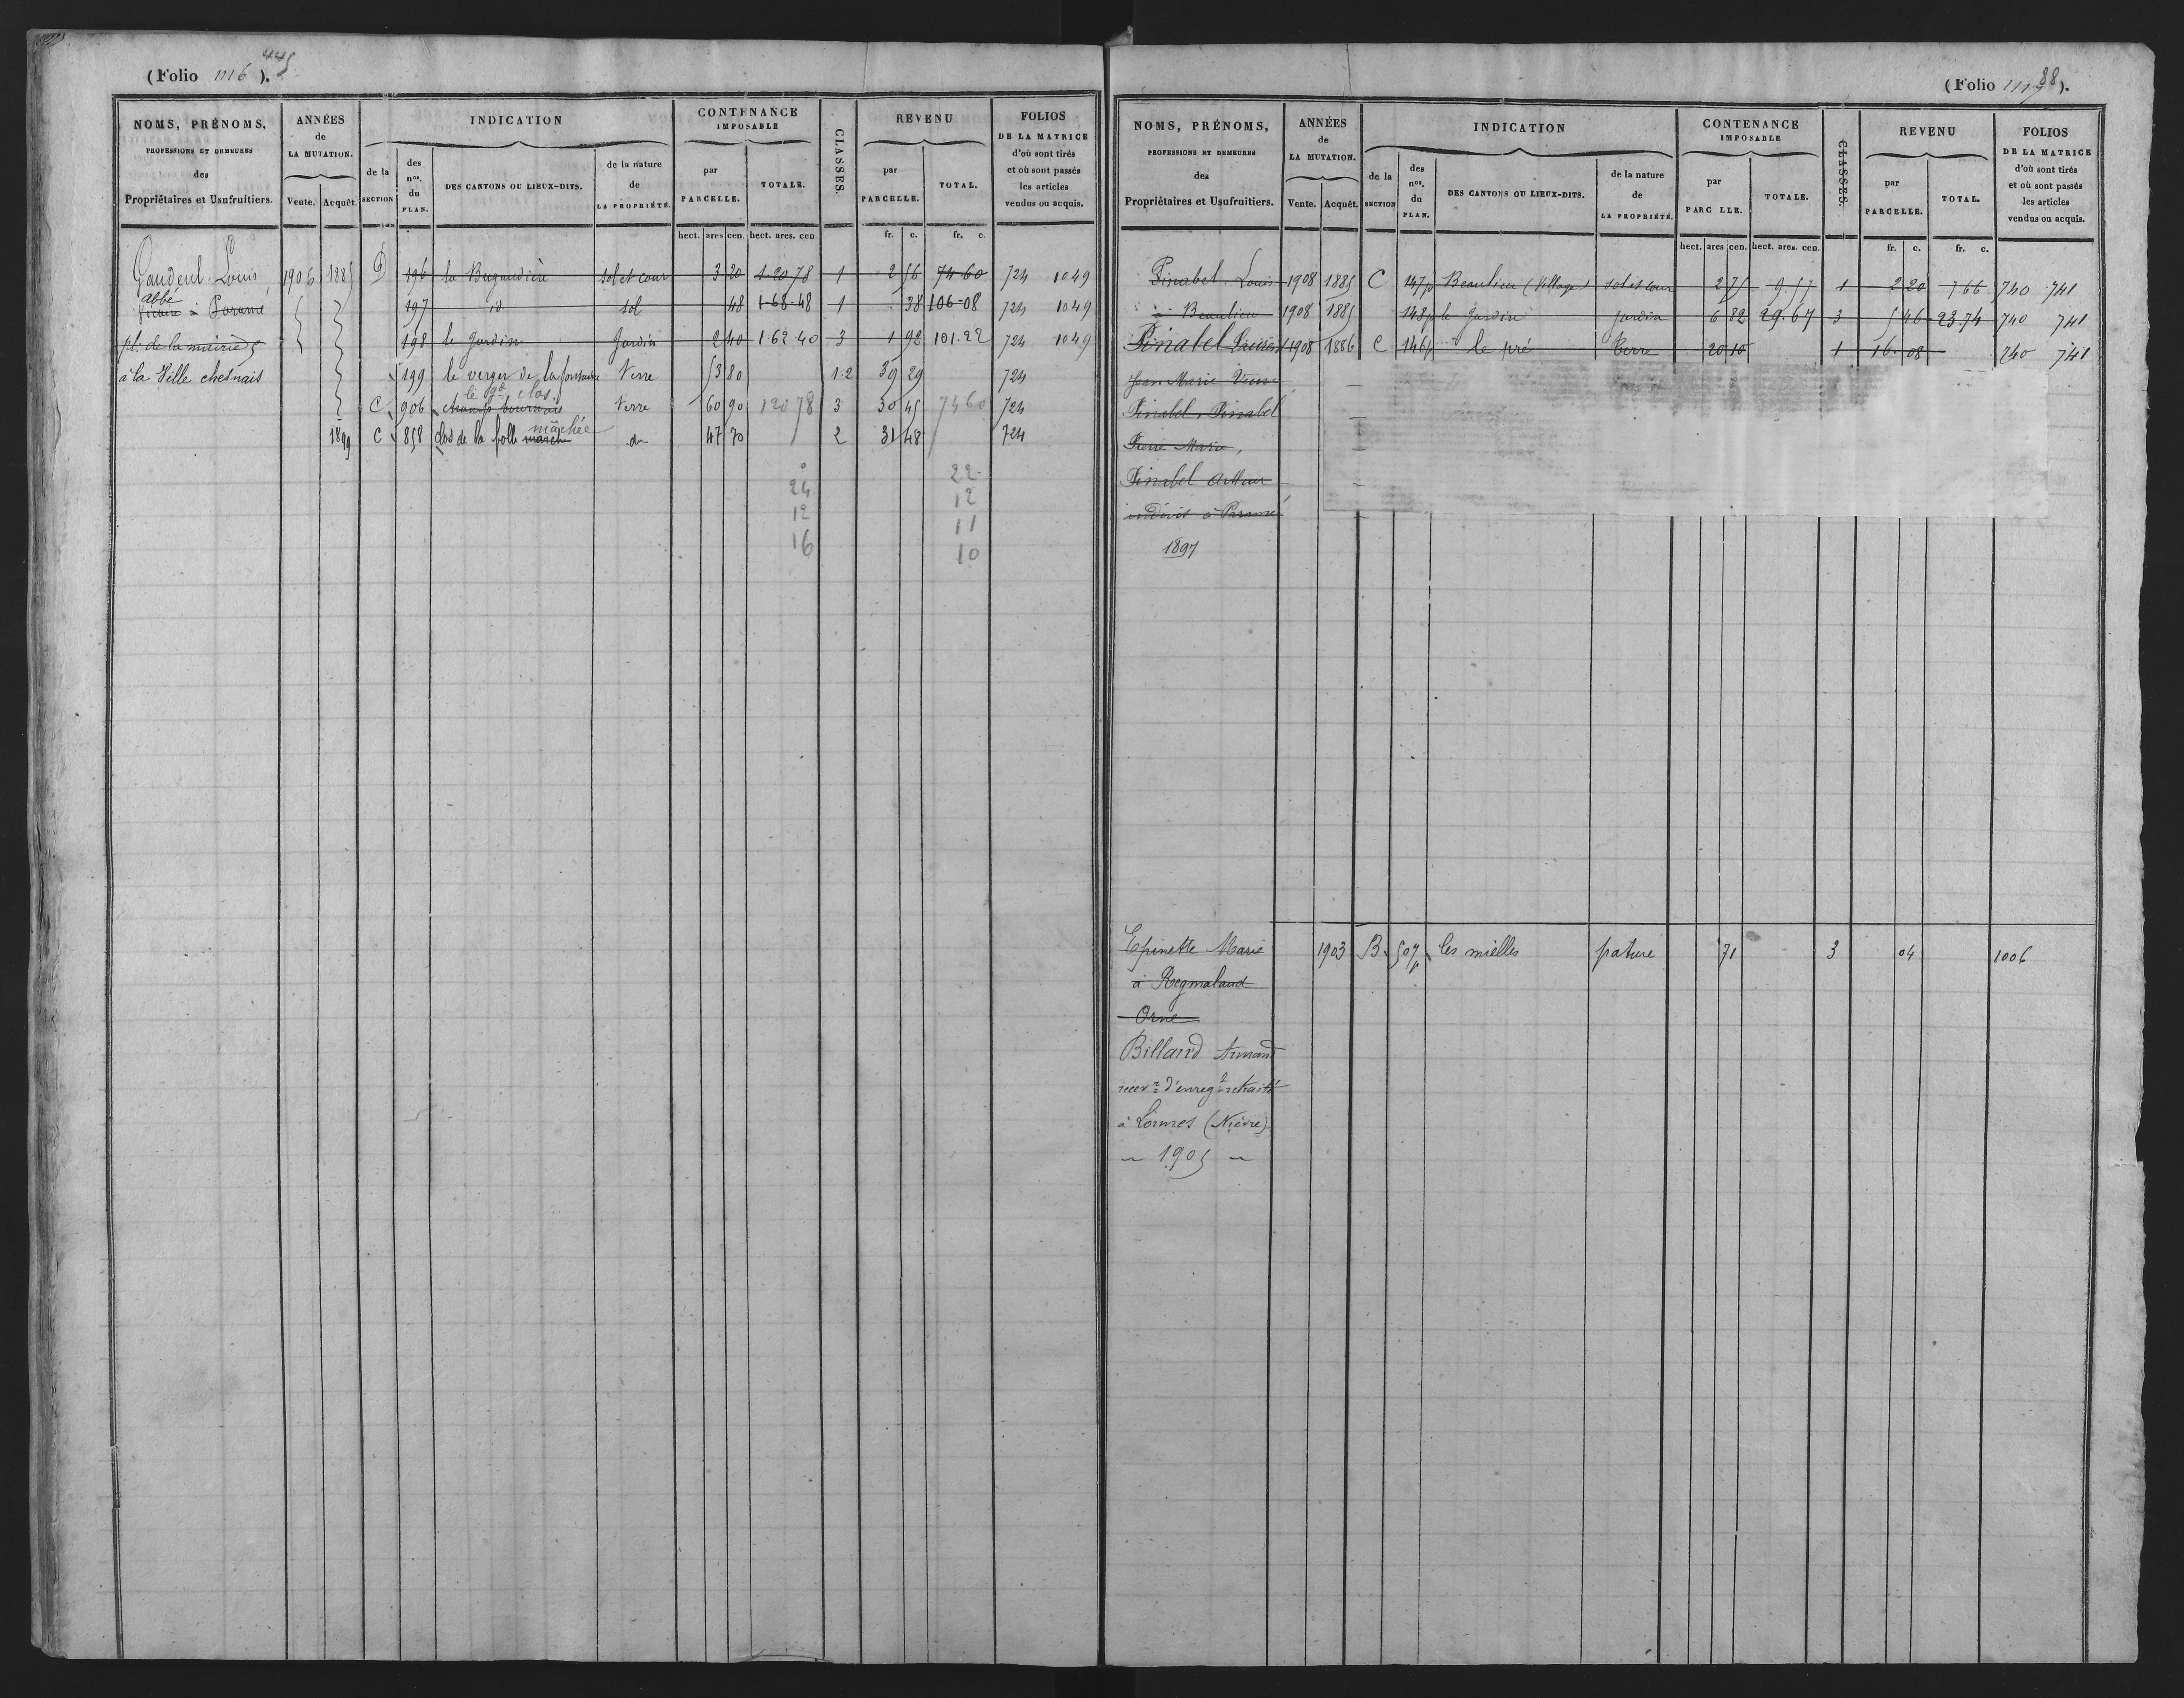 (Folio 1116). 445
NOMS, PRÉNOMS,
PROFESSIONS ET DEMEURES
des
Propriétaires et Usufruitiers.
ANNÉES
de
LA MUTATION.
Vente. Acquêt.
INDICATION
de la
SECTION
des
nos.
du
PLAN.
DES CANTONS OU LIEUX-DITS.
de la nature
de
LA PROPRIÉTÉ.
CONTENANCE
IMPOSABLE
par
PARCELLE.
TOTALE.
hect. ares cen. hect. ares. cen.
CLASSES.
REVENU
par
PARCELLE.
TOTAL.
fr. c. fr. c.
FOLIOS
DE LA MATRICE
d'où sont tirés
et où sont passés
les articles
vendus ou acquis.
Gaudeul Louis, 1906 1885 D 196 la Bugaudière sol et cour 3 20 1-20-78 1 2 56 74-60 724 1049
abbé
à Paramé 197 id sol 48 1-68-48 1 38 106-08 724 1049
pl. de la mairie 5 198 le Jardin Jardin 2 40 1-62-40 3 1 92 101.22 724 1049
à la Ville chesnais 199 le verger de la fontaine Terre 53 80 1-2 39 29 724
le gd clos
C 906 champ tournais Terre 60 90 120 78 3 30 45 7460 724
mâchée
1899 C 858 clos de la folle marche do 47 70 2 31 48 724
22
24 12
12 11
16 10
(Folio 1117). 88
NOMS, PRÉNOMS,
PROFESSIONS ET DEMEURES
des
Propriétaires et Usufruitiers.
ANNÉES
de
LA MUTATION.
Vente. Acquêt.
INDICATION
de la
SECTION
des
nos.
du
PLAN.
DES CANTONS OU LIEUX-DITS.
de la nature
de
LA PROPRIÉTÉ.
CONTENANCE
IMPOSABLE
par
PARC LLE.
TOTALE.
hect. ares cen. hect. ares. cen.
CLASSES.
REVENU
par
PARCELLE.
TOTAL.
fr. c. fr. c.
FOLIOS
DE LA MATRICE
d'où sont tirés
et où sont passés
les articles
vendus ou acquis.
Pinabel Louis 1908 1885 C 147p Beaulieu (Village) sol et cour 2 75 9.57 1 2 20 7 66 740 741
à Beaulieu 1908 1885 148p le Jardin Jardin 6 82 29.67 3 5 46 23.74 740 741
Pinabel 1908 1886 C 146p le pré Terre 20 10 1 16 08 740 741
Jean Marie
Pinabel Pinabel
Pierre Marie,
Pinabel Arthur
indivis à Paramé
1897
Epinette Marie 1903 B 507p les mielles pature 71 3 04 1006
à Regmaland
Orne
Billard Armand
recevr d'enregt retraité
à Lormes (Nièvre)
1905